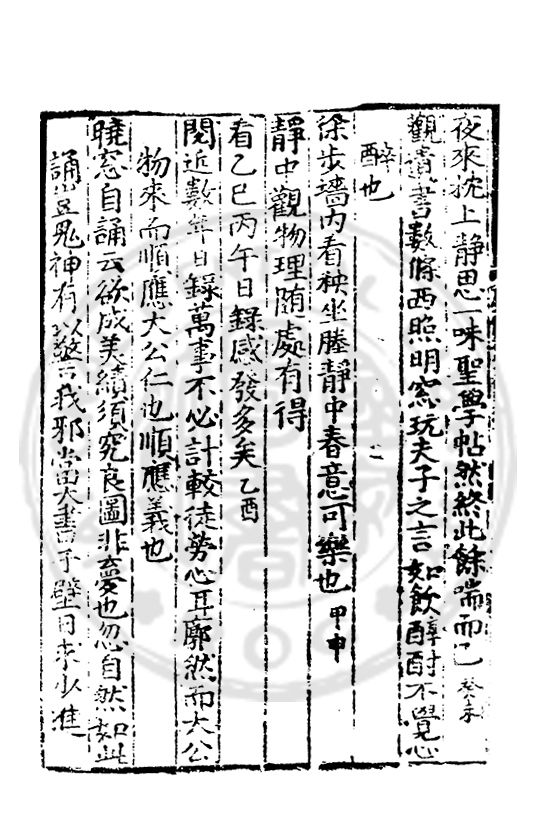 夜來枕上靜思一味聖學帖然終此餘喘而已癸未
觀濂書數條西照明窓玩夫子之言如飲醇酎不覺心
醉也
徐步墻内看秧坐塍靜中春意可樂也甲申
靜中觀物理隨處有得
看乙巳丙午日錄感發多矣乙酉
閱近數年日錄萬事不必計較徒勞心耳廓然而大公
物來而順應大公仁也順應義也
曉窓自誦云欲成美績須究良圖非夢也忽自然如此
誦豈鬼神有以警我邪當大書于壁日求少進